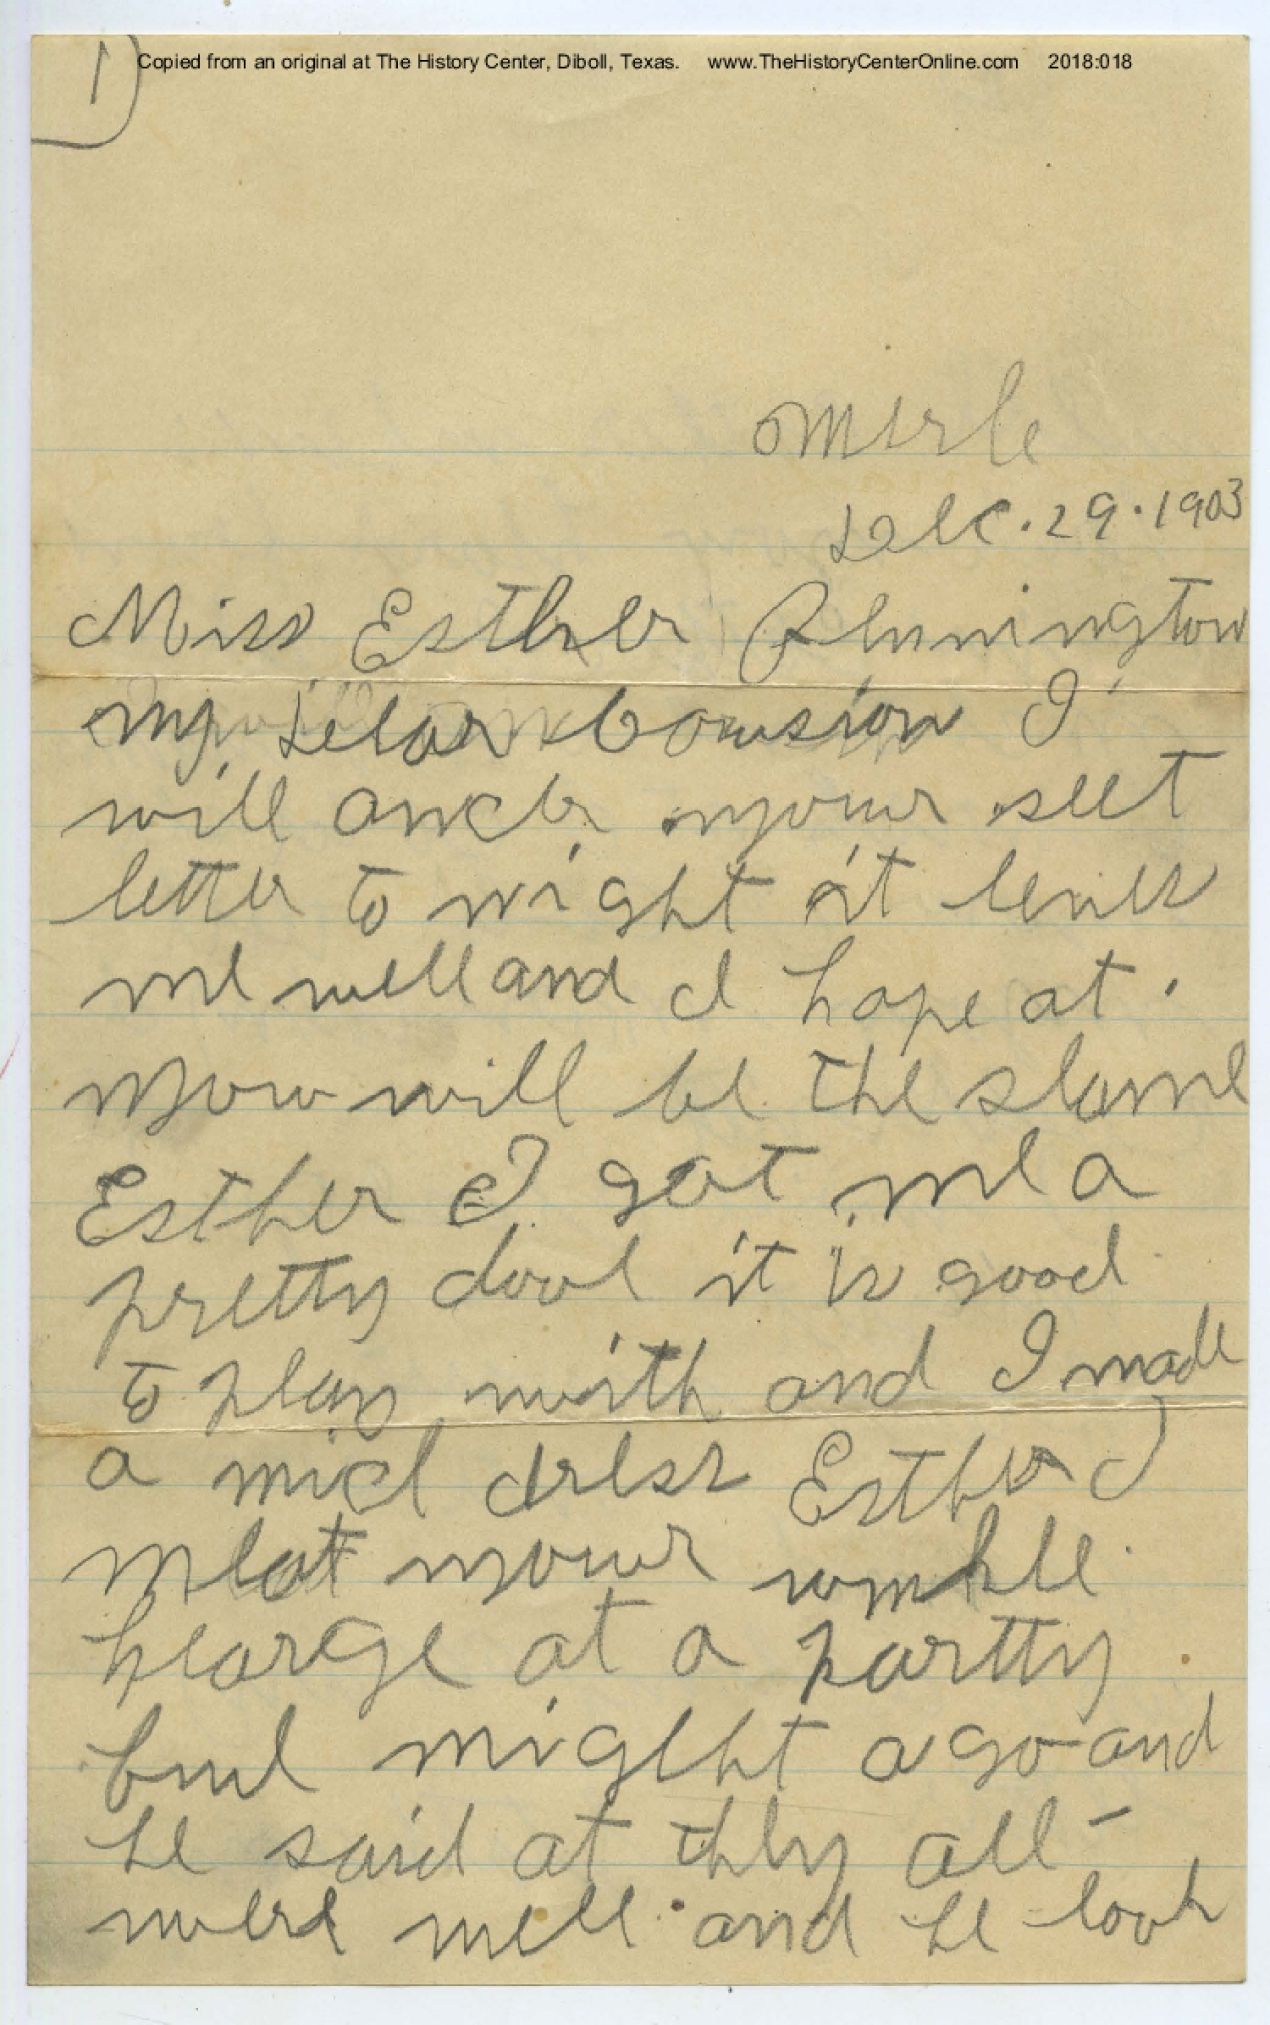 1
Copied from an original at The History Center, Diboll, Texas. www.TheHistoryCenterOnline.com 2018:018
Merle
Dec. 29. 1903
Miss Esther Pennington
my dear cousion I
will ancer your seet
letter to night it leaves
me well and I hope at
you will be the same
Esther I got me a
pretty dool it is good
to play with and I made
a nice dress Esther I
meat your unkle
george at a partty
few night ago and
he said at they all
were well and he look